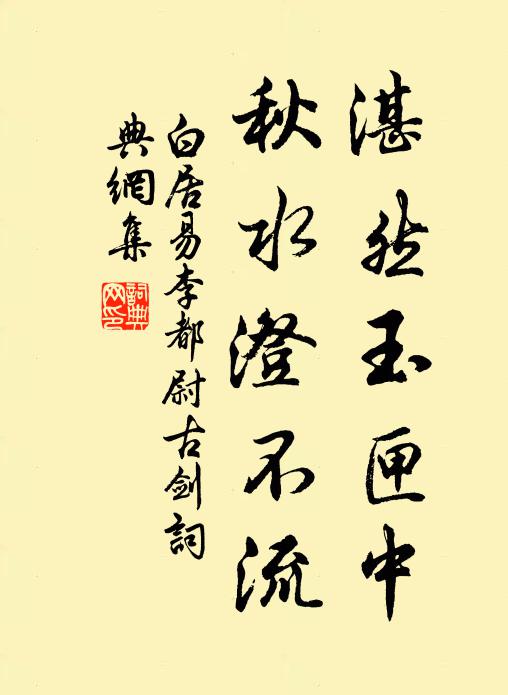 湛然玉匣中
秋水澄不流
白居易李都尉古剑詞
典網集
詞典網印